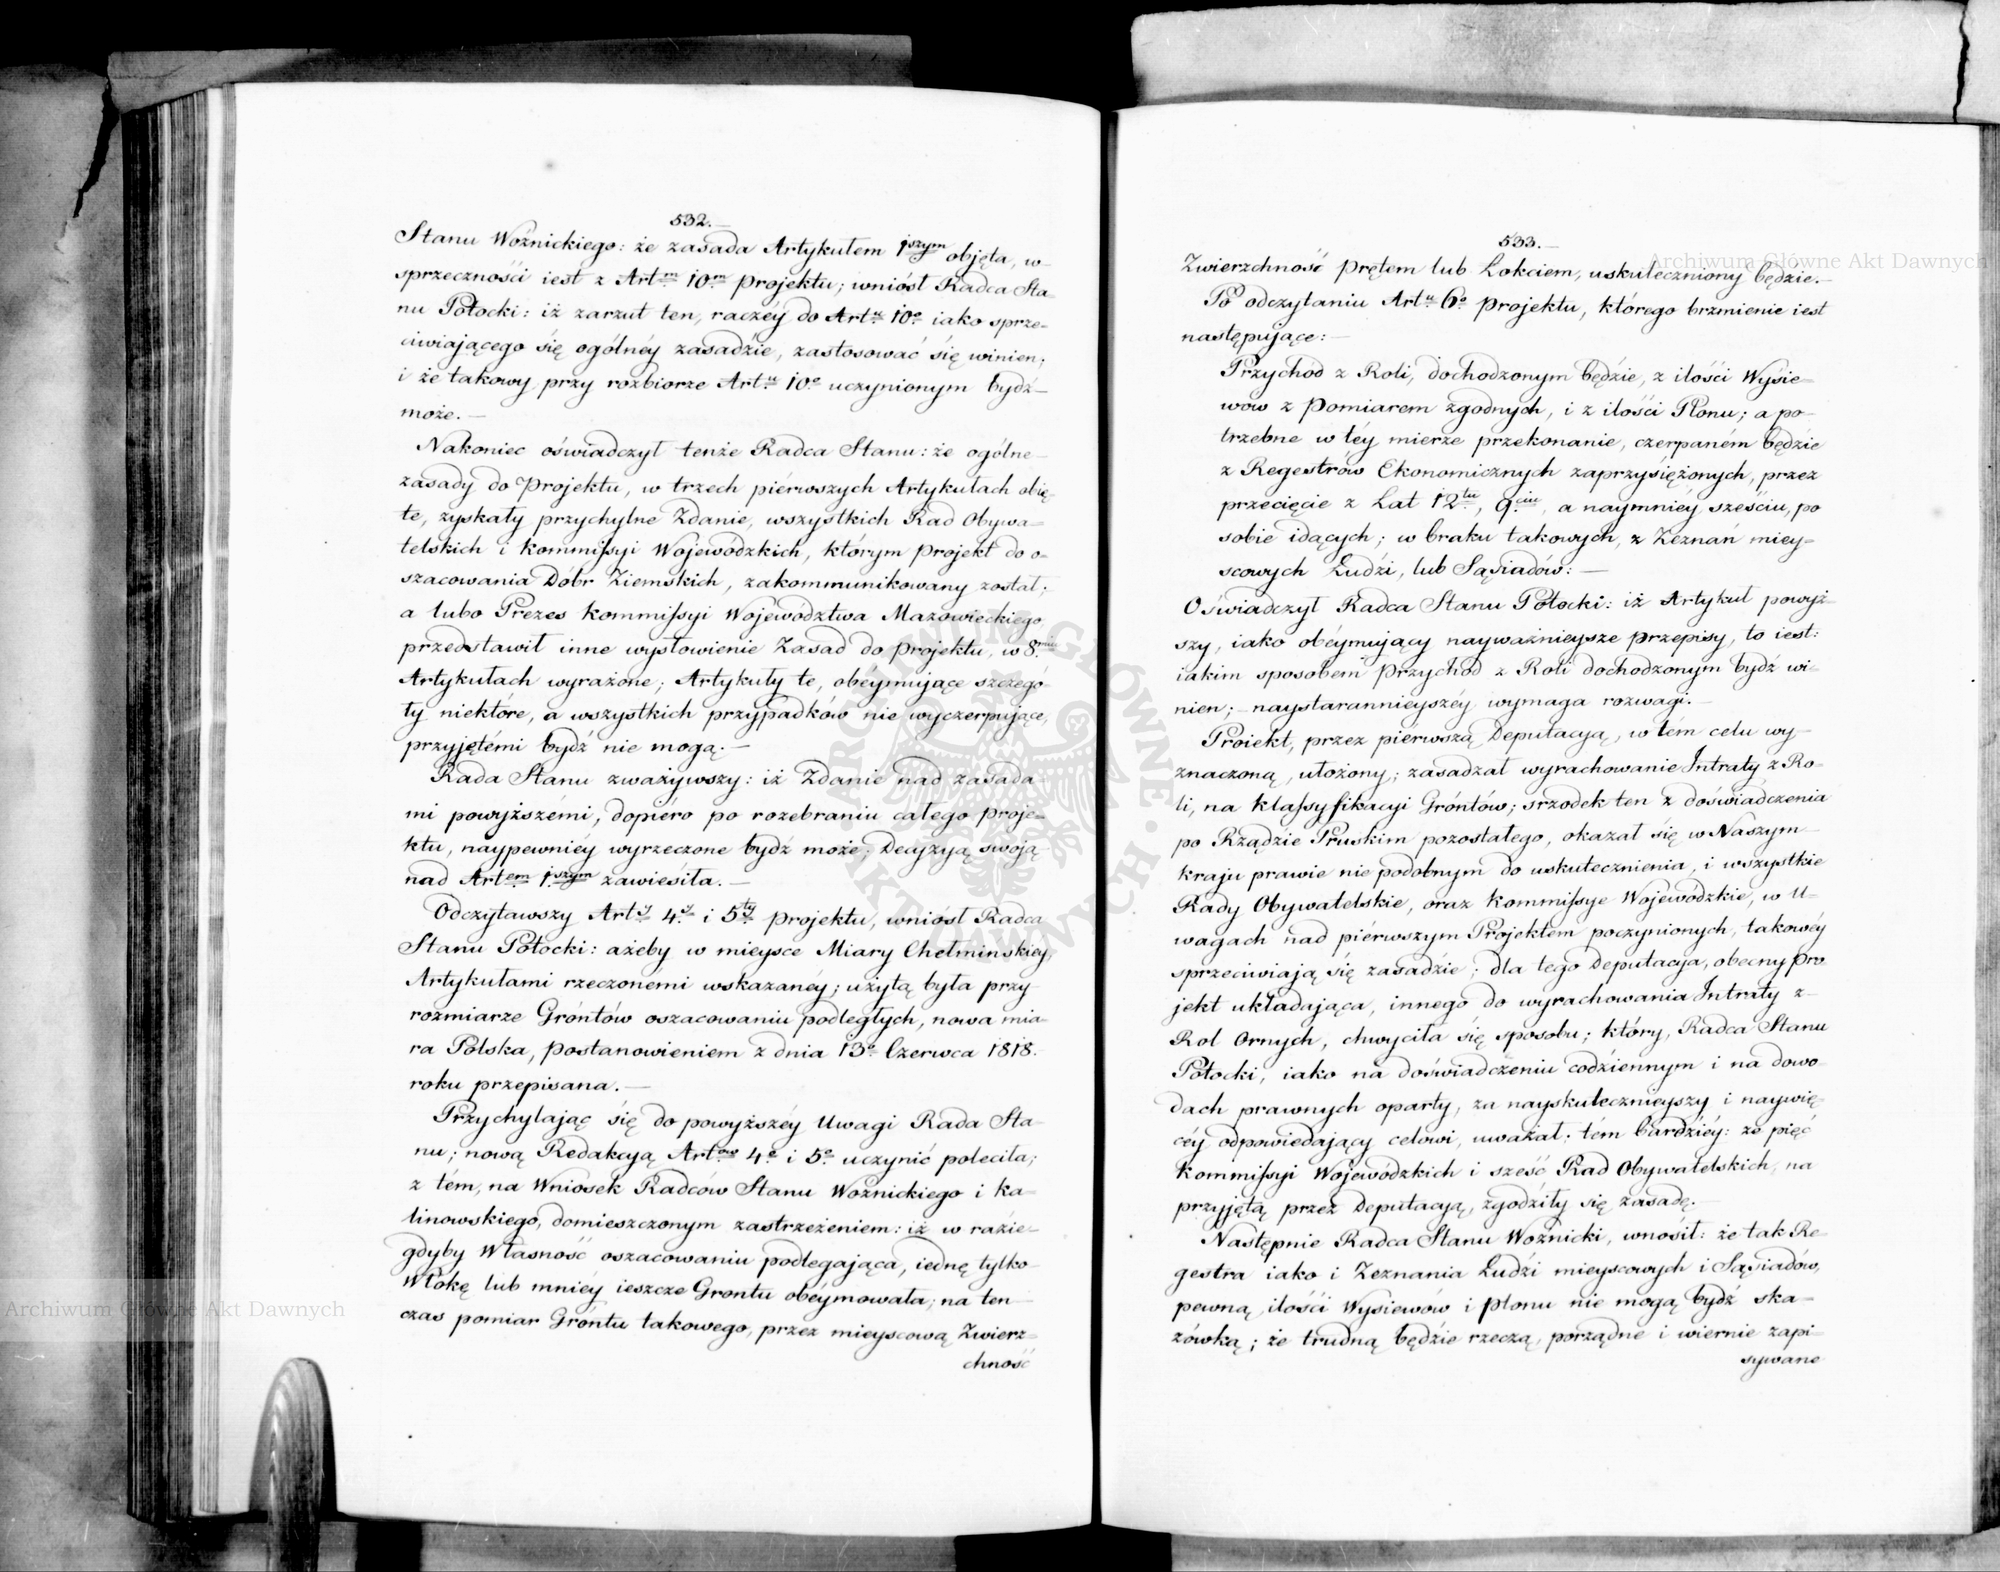 532.—
Stanu Woźnickiego: że zasada Artykułem 1szym objęta, w
sprzeczności iest z Artm 10m projektu; wniósł Radca Sta=
nu Potocki: iż zarzut ten, raczéy do Artu 10o iako sprze=
ciwiającego się ogólnéy zasadzie, zastosować się winien;
i że takowy przy rozbiorze Artu 10o uczynionym bydź—
może.—
Nakoniec oświadczył tenże Radca Stanu: że ogólne—
zasady do Projektu, w trzech piérwszych Artykułach obię=
te, zyskały przychylne Zdanie, wszystkich Rad Obywa=
telskich i Kommissyi Wojewódzkich, którym Projekt do o=
szacowania Dóbr Ziemskich, zakommunikowany został;
a lubo Prezes Kommissyi Województwa Mazowieckiego
przedstawił inne wysłowienie Zasad do projektu, w 8miu
Artykułach wyrażone; Artykuły te, obéymujące szczegó=
ły niektóre, a wszystkich przypadków nie wyczerpujące,
przyjętémi bydź nie mogą.—
Rada Stanu zważywszy: iż Zdanie nad zasada=
mi powyższémi, dopiéro po rozebraniu całego proje=
ktu, naypewniéy wyrzeczone bydź może; Decyzyą swoją
nad Artem 1szym zawiesiła.—
Odczytawszy Arty 4y i 5ty projektu, wniósł Radca
Stanu Potocki: ażeby w mieysce Miary Chełminskiey,
Artykułami rzeczonémi wskazanéy; użytą była przy
rozmiarze Gróntów oszacowaniu podległych, nowa mia=
ra Polska, postanowieniem z dnia 13o Czerwca 1818.
roku przepisana.—
Przychylając się do powyższéy Uwagi Rada Sta=
nu; nową Redakcyą Artow 4o i 5o uczynić poleciła;
z tém, na Wniosek Radców Stanu Woźnickiego i Ka=
linowskiego, domieszczonym zastrzeżeniem: iż w razie—
gdyby Własność oszacowaniu podlegająca, iednę tylko—
Włokę lub mniéy ieszcze Grontu obéymowała; na ten—
czas pomiar Gróntu takowego, przez mieyscową Zwierz=
chność
533.—
Zwierzchność prętem lub Łokciem, uskuteczniony będzie.—
Po odczytaniu Artu 6o projektu, którego brzmienie iest
następujące:—
Przychód z Roli, dochodzonym będzie, z ilości Wysie=
wow z Pomiarem zgodnych, i z ilości Plonu; a po=
trzebne w téy mierze przekonanie, czerpaném będzie
z Regestrów Ekonomicznych zaprzysiężonych, przez
przecięcie z Lat 12tu, 9ciu, a naymniéy sześciu, po
sobie idących; w braku takowych, z Zeznań miey=
scowych Ludzi, lub Sąsiadów:—
Oświadczył Radca Stanu Potocki: iż Artykuł powyż=
szy, iako obéymujący nayważnieysze przepisy, to iest:
iakim sposobem Przychód z Roli dochodzonym bydź wi=
nien;—naystarannieyszéy wymaga rozwagi.—
Proiekt, przez piérwszą Deputacyą, w tém celu wy=
znaczoną, ułożony; zasadzał wyrachowanie Intraty z Ro=
li, na klassyfikacyi Gróntów; srzodek ten z doświadczenia
po Rządzie Pruskim pozostałego, okazał się w Naszym—
kraju prawie nie podobnym do uskutecznienia, i wszystkie
Rady Obywatelskie, oraz Kommissye Wojewódzkie, w U=
wagach nad piérwszym Projektem poczynionych, takowéy
sprzeciwiają się zasadzie; dla tego Deputacya, obecny pro
jekt układająca, innego do wyrachowania Intraty z—
Rol Ornych, chwyciła się sposobu; który, Radca Stanu
Potocki, iako na doświadczeniu codziennym i na dowo=
dach prawnych oparty, za nayskutecznieyszy i naywię=
céy odpowiedający celowi, uważał; tem bardziéy: że pięć
Kommissyi Wojewódzkich i sześć Rad Obywatelskich, na
przyjętą przez Deputacyą, zgodziły się zasadę.—
Następnie Radca Stanu Woźnicki, wnosił: że tak Re=
gestra iako i Zeznania Ludzi mieyscowych i Sąsiadów,
pewną ilości Wysiewów i plonu nie mogą bydź ska=
zówką; że trudną będzie rzeczą, porządne i wiernie zapi=
sywane
Archiwum Główne Akt Dawnych
Archiwum Główne Akt Dawnych
ARCHIWUM GŁÓWNE AKT DAWNYCH